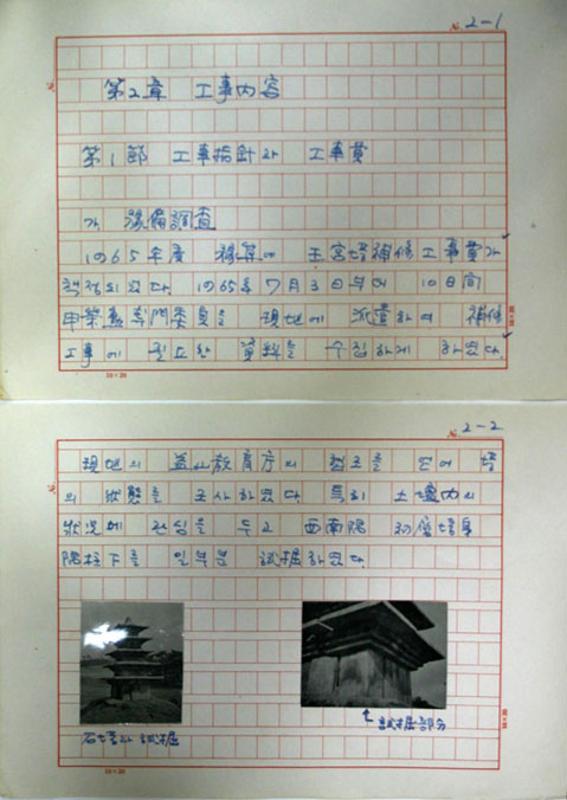 No. 2-1
第2章 工事内容
第1節 工事指針과 工事費
가. 豫備調査
1965年度 豫算에 王宮塔補修工事費가
책정되었다. 1965年 7月 3日부터 10日間
申榮勳專門委員을 現地에 派遣하여 補修
工事에 필요한 資料를 수집하게 하였다.
10×20
No. 2-2
現地의 益山敎育庁의 협조를 얻어 塔
의 狀態를 조사하였다. 특히 土壇内의
狀況에 관심을 두고 西南隅 初層塔身
隅柱下를 一部分 試掘하였다.
↑試掘部分
石塔과 試掘
10×20